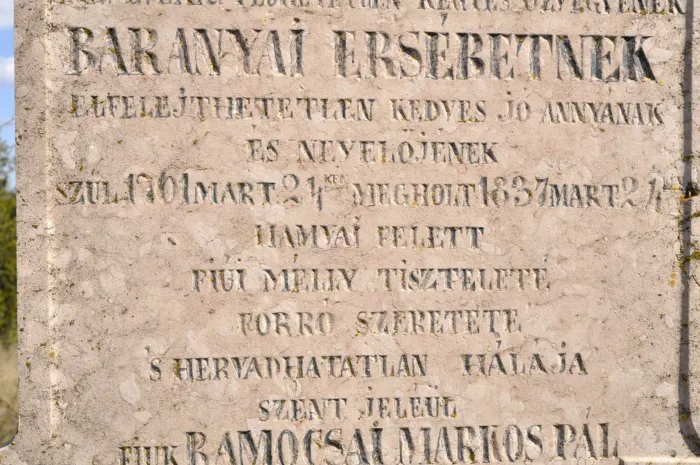 KEGYES ÖZVEGYÉNEK
BARANYAI ERSÉBETNEK
ELFELEJTHETETLEN KEDVES JÓ ANNYÁNAK
ÉS NEVELŐJÉNEK
SZÜL. 1761 MART. 24KÉN MEGHOLT 1837 MART. 24KÉN
HAMVAI FELETT
FIÚI MÉLLY TISZTELETE
FORRÓ SZERETETE
'S HERVADHATATLAN HÁLÁJA
SZENT JELEÜL
FIUK RAMOCSAI MARKOS PÁL